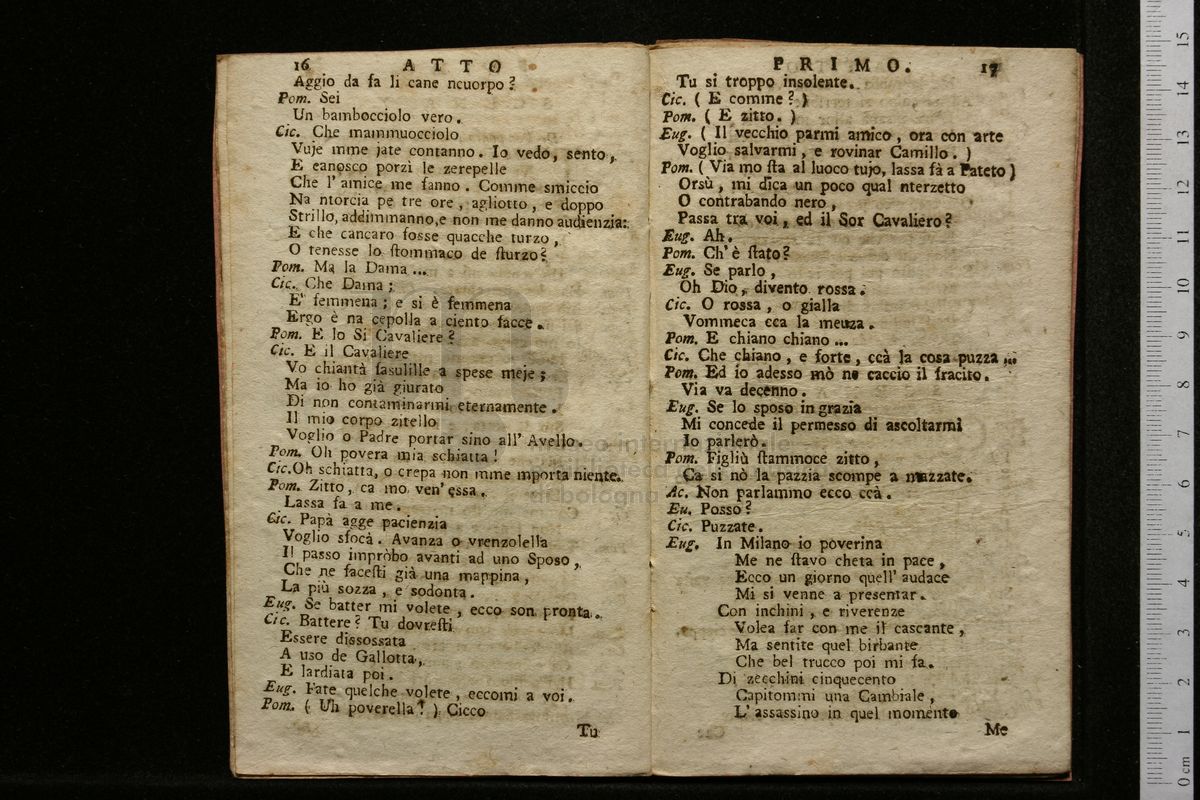 16 ATTO
Aggio da fa li cane ncuorpo?
Pom. Sei
Un bambocciolo vero.
Cic. Che mammuocciolo
Vuje mme jate contanno. Io vedo, sento,
E canosco porzì le zerepelle
Che l'amice me fanno. Comme smiccio
Na ntorcia pe tre ore, agliotto, e doppo
Strillo, addimmanno, e non me danno audienzia:
E che cancaro fosse quacche turzo,
O tenesse lo stommaco de sturzo?
Pom. Ma la Dama ...
Cic. Che Dama;
E' femmena; e si è femmena
Ergo è na cepolla a ciento facce.
Pom. E lo Si Cavaliere?
Cic. E il Cavaliere
Vo chiantà fasulille a spese meje;
Ma io ho già giurato
Di non contaminarmi eternamente.
Il mio corpo zitello
Voglio o Padre portar sino all' Avello.
Pom. Oh povera mia schiatta!
Cic. Oh schiatta, o crepa non mme mporta niente.
Pom. Zitto, ca mo ven' essa.
Lassa fa a me.
Cic. Papà agge pacienzia
Voglio sfocà. Avanza o vrenzolella
Il passo impròbo avanti ad uno Sposo,
Che ne facesti già una mappina,
La più sozza, e sodonta.
Eug. Se batter mi volete, ecco son pronta.
Cic. Battere? Tu dovresti
Essere dissossata
A uso de Gallotta,
E lardiata poi.
Eug. Fate quelche volete, eccomi a voi.
Pom. ( Uh poverella! ) Cicco
Tu
PRIMO. 17
Tu si troppo insolente.
Cic. ( E comme? )
Pom. ( E zitto. )
Eug. ( Il vecchio parmi amico, ora con arte
Voglio salvarmi, e rovinar Camillo. )
Pom. ( Via mo sta al luoco tujo, lassa fà a Pateto )
Orsù, mi dica un poco qual nterzetto
O contrabando nero,
Passa tra voi, ed il Sor Cavaliero?
Eug. Ah.
Pom. Ch' è stato?
Eug. Se parlo,
Oh Dio, divento rossa.
Cic. O rossa, o gialla
Vommeca cca la meuza.
Pom. E chiano chiano ...
Cic. Che chiano, e forte, ccà la cosa puzza ...
Pom. Ed io adesso mò ne caccio il fracito.
Via va decenno.
Eug. Se lo sposo in grazia
Mi concede il permesso di ascoltarmi
Io parlerò.
Pom. Figliù stammoce zitto,
Ca si nò la pazzia scompe a mazzate.
Ac. Non parlammo ecco ccà.
Eu. Posso?
Cic. Puzzate.
Eug. In Milano io poverina
Me ne stavo cheta in pace,
Ecco un giorno quell' audace
Mi si venne a presentar.
Con inchini, e riverenze
Volea far con me il cascante,
Ma sentite quel birbante
Che bel trucco poi mi fa.
Di zecchini cinquecento
Capitommi una Cambiale,
L' assassino in quel momento
Me